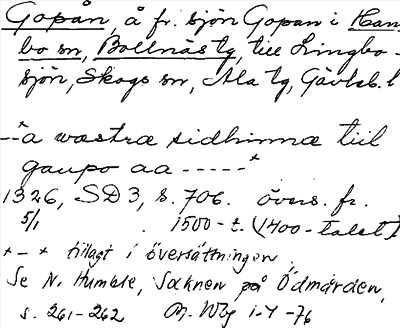 Gopån, å fr. sjön Gopan i Han
bo sn, Bollnäs tg, till Lingbo-
sjön, Skogs sn, Ala tg, Gävleb. l
--x a wæstræ sidhinnæ tiil
gaupo aa -----x
1326, SD3, s. 706. övers. fr.
5/1 1500-t. (1400-talet)
x-x tillagt i översättningen
Se N. Humble, Socknen på Ödmården,
s. 261-262 M. Wbg i-4-76